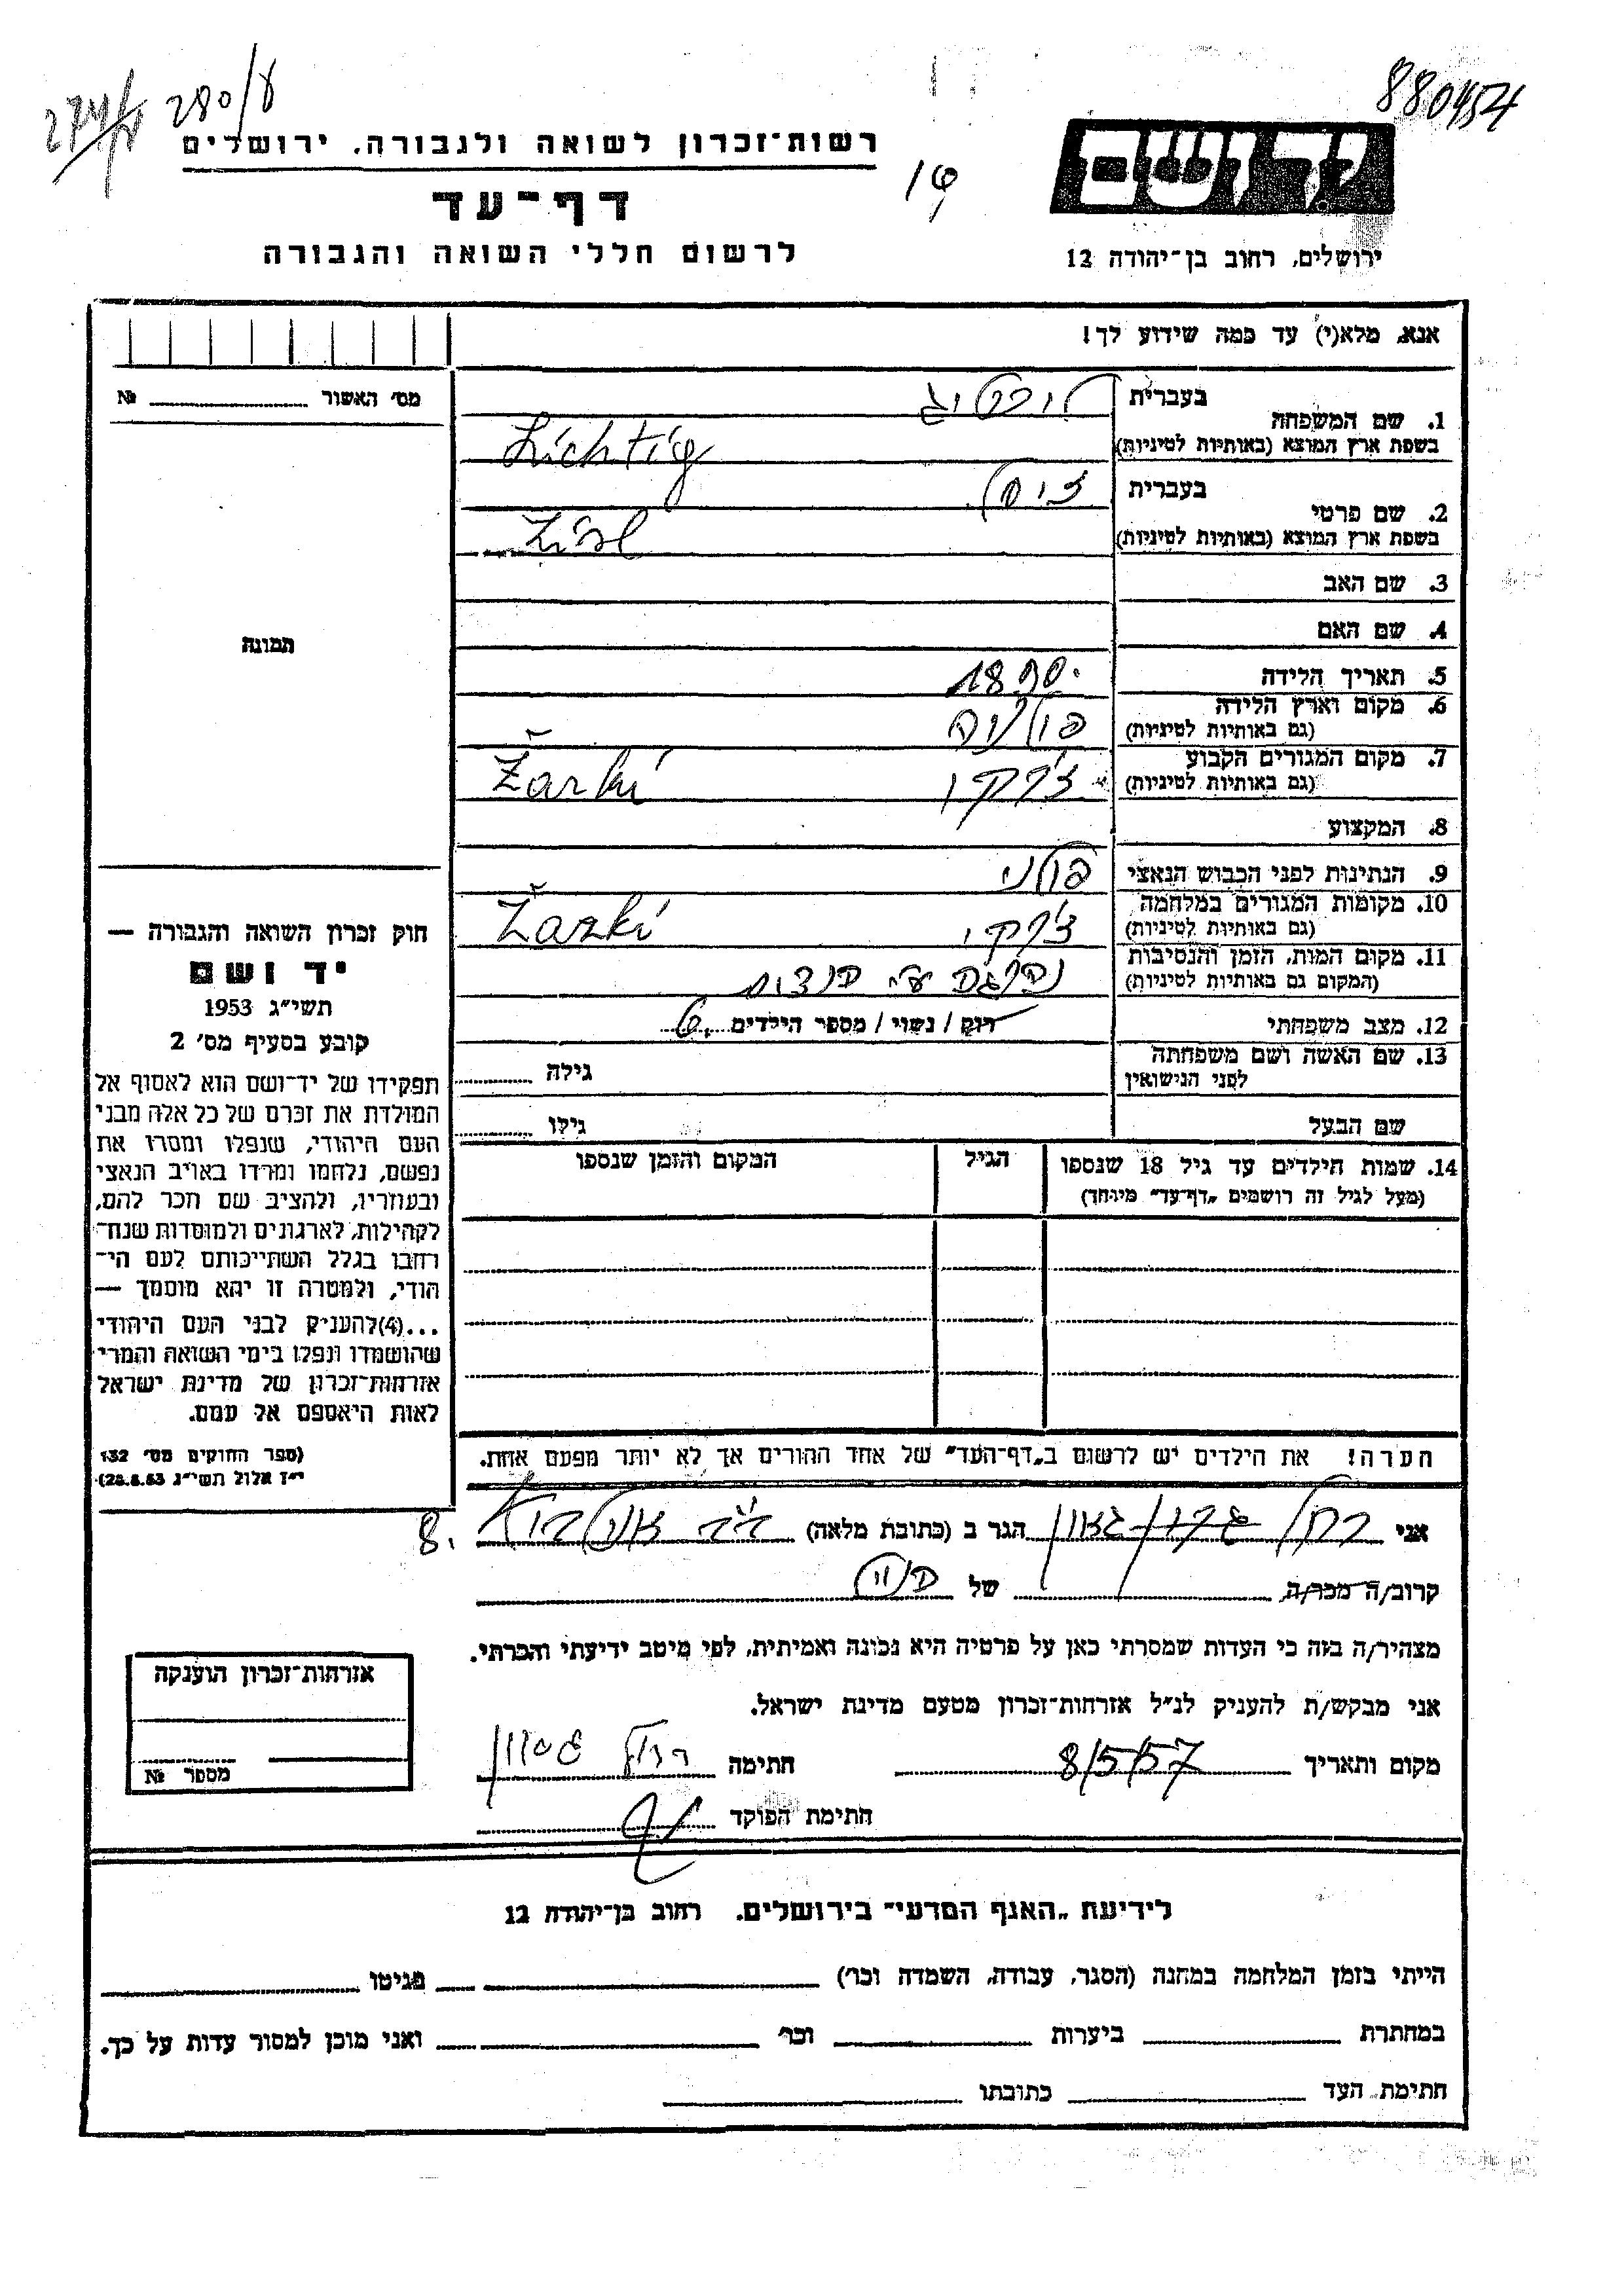 880454
280/8
רשות־זכרון לשואה ולגבורה, ירושלים
דף־עד
לרשום חללי השואה והגבורה
יד ושם
ירושלים, רחוב בן־יהודה 12
אנא, מלא(י) עד כמה שידוע לך!
מס׳ האשור № 
1. שם המשפחה
בעברית ליכטיג
בשפת ארץ המוצא (באותיות לטיניות) Lichtig
2. שם פרטי
בעברית זיסל
בשפת ארץ המוצא (באותיות לטיניות) Zisl
3. שם האב
4. שם האם
תמונה
5. תאריך הלידה 1890
6. מקום וארץ הלידה פולניה
(גם באותיות לטיניות)
7. מקום המגורים הקבוע ז׳רקי Žarki
(גם באותיות לטיניות)
8. המקצוע
9. הנתינות לפני הכבוש הנאצי פולני
10. מקומות המגורים במלחמה ז׳רקי Žarki
(גם באותיות לטיניות)
11. מקום המות, הזמן והנסיבות
(המקום גם באותיות לטיניות)
12. מצב משפחתי רוק / נשוי / מספר הילדים
13. שם האשה ושם משפחתה גילה
לפני הנישואין
שם הבעל גילו
14. שמות הילדים עד גיל 18 שנספו הגיל המקום והזמן שנספו
(מעל לגיל זה רושמים „דף־עד״ מיוחד)
חוק זכרון השואה והגבורה —
יד ושם
תשי״ג 1953
קובע בסעיף מס׳ 2
תפקידו של יד־ושם הוא לאסוף אל
המולדת את זכרם של כל אלה מבני
העם היהודי, שנפלו ומסרו את
נפשם, נלחמו ומרדו באויב הנאצי
ובעוזריו, ולהציב שם וזכר להם,
לקהילות, לארגונים ולמוסדות שנח־
רבו בגלל השתייכותם לעם הי־
הודי, ולמטרה זו יהא מוסמך —
...(4)להעניק לבני העם היהודי
שהושמדו ונפלו בימי השואה והמרי
אזרחות־זכרון של מדינת ישראל
לאות היאספם אל עמם.
(ספר החוקים מס׳ 132
י״ז אלול תשי״ג 28.8.53)
הערה! את הילדים יש לרשום ב„דף־העד״ של אחד ההורים אך לא יותר מפעם אחת.
אני רחל הגר ב (כתובת מלאה) 8.
קרוב/ה מכר/ה של
מצהיר/ה בזה כי העדות שמסרתי כאן על פרטיה היא נכונה ואמיתית, לפי מיטב ידיעתי והכרתי.
אני מבקש/ת להעניק לנ״ל אזרחות־זכרון מטעם מדינת ישראל.
מקום ותאריך 8/5/57 חתימה רחל
חתימת הפוקד
אזרחות־זכרון הוענקה
מספר №
לידיעת „האגף המדעי״ בירושלים, רחוב בן־יהודה 12
הייתי בזמן המלחמה במחנה (הסגר, עבודה, השמדה וכו׳) בגיטו
במחתרת ביערות וכו׳ ואני מוכן למסור עדות על כך.
חתימת העד כתובתו